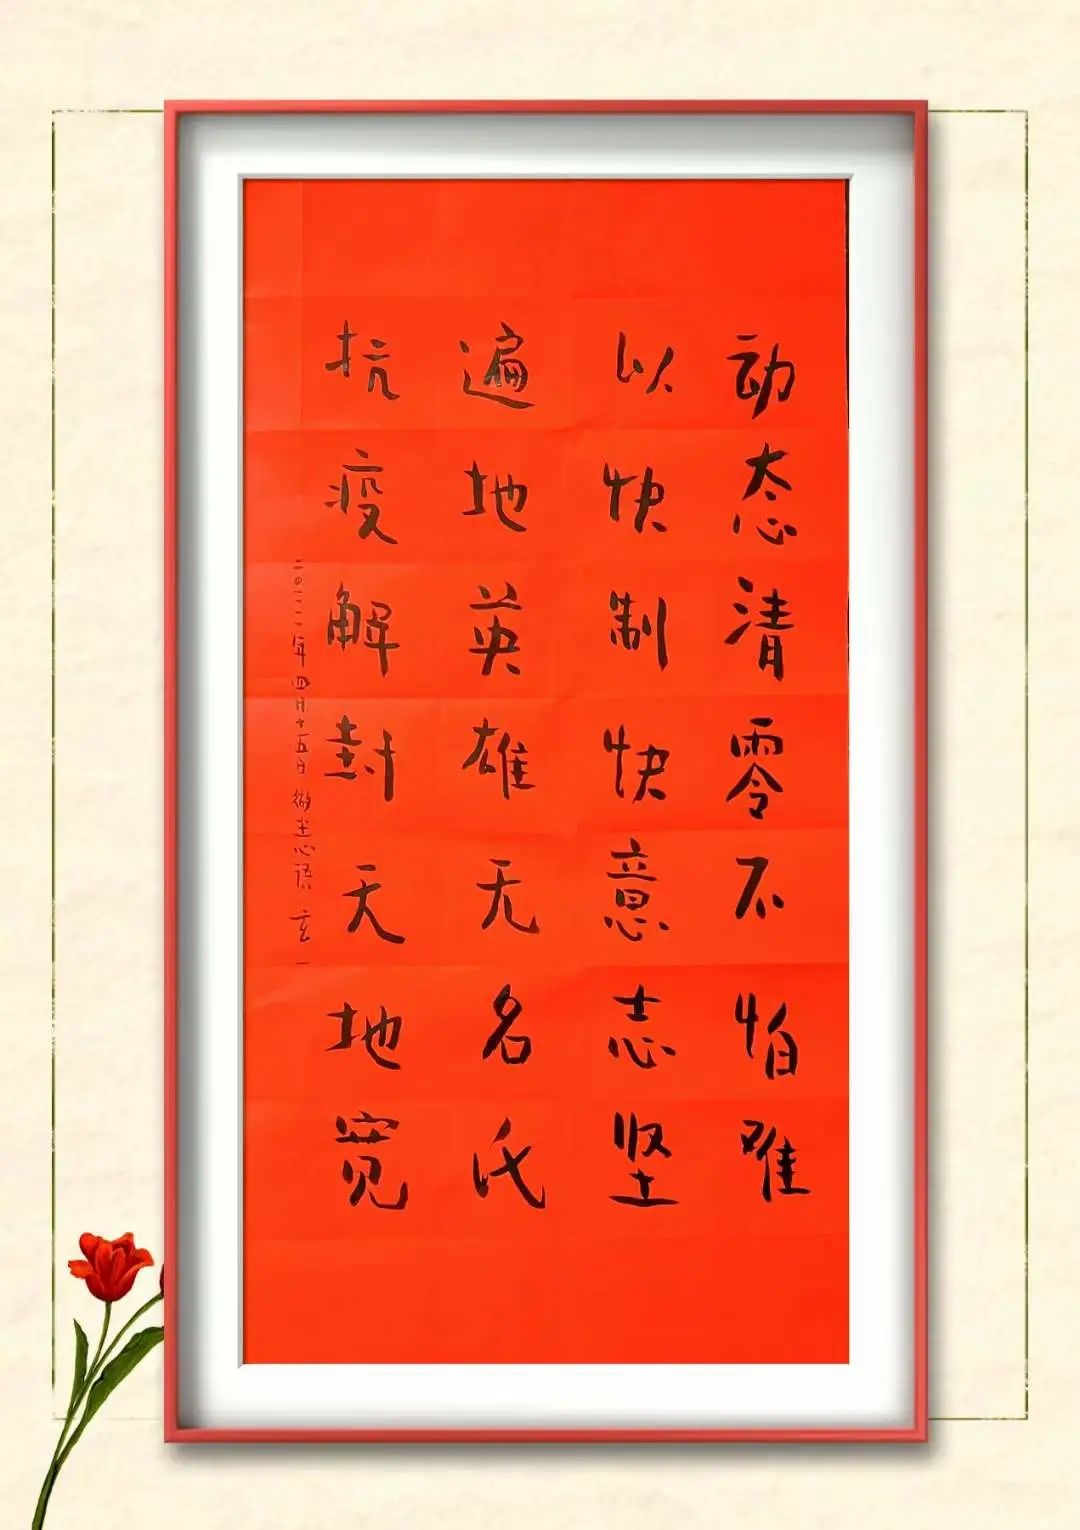 动态清零不怕难
以快制快意志坚
遍地英雄无名氏
抗疫解封天地宽
二〇二二年四月十五日 微尘心语 玄一